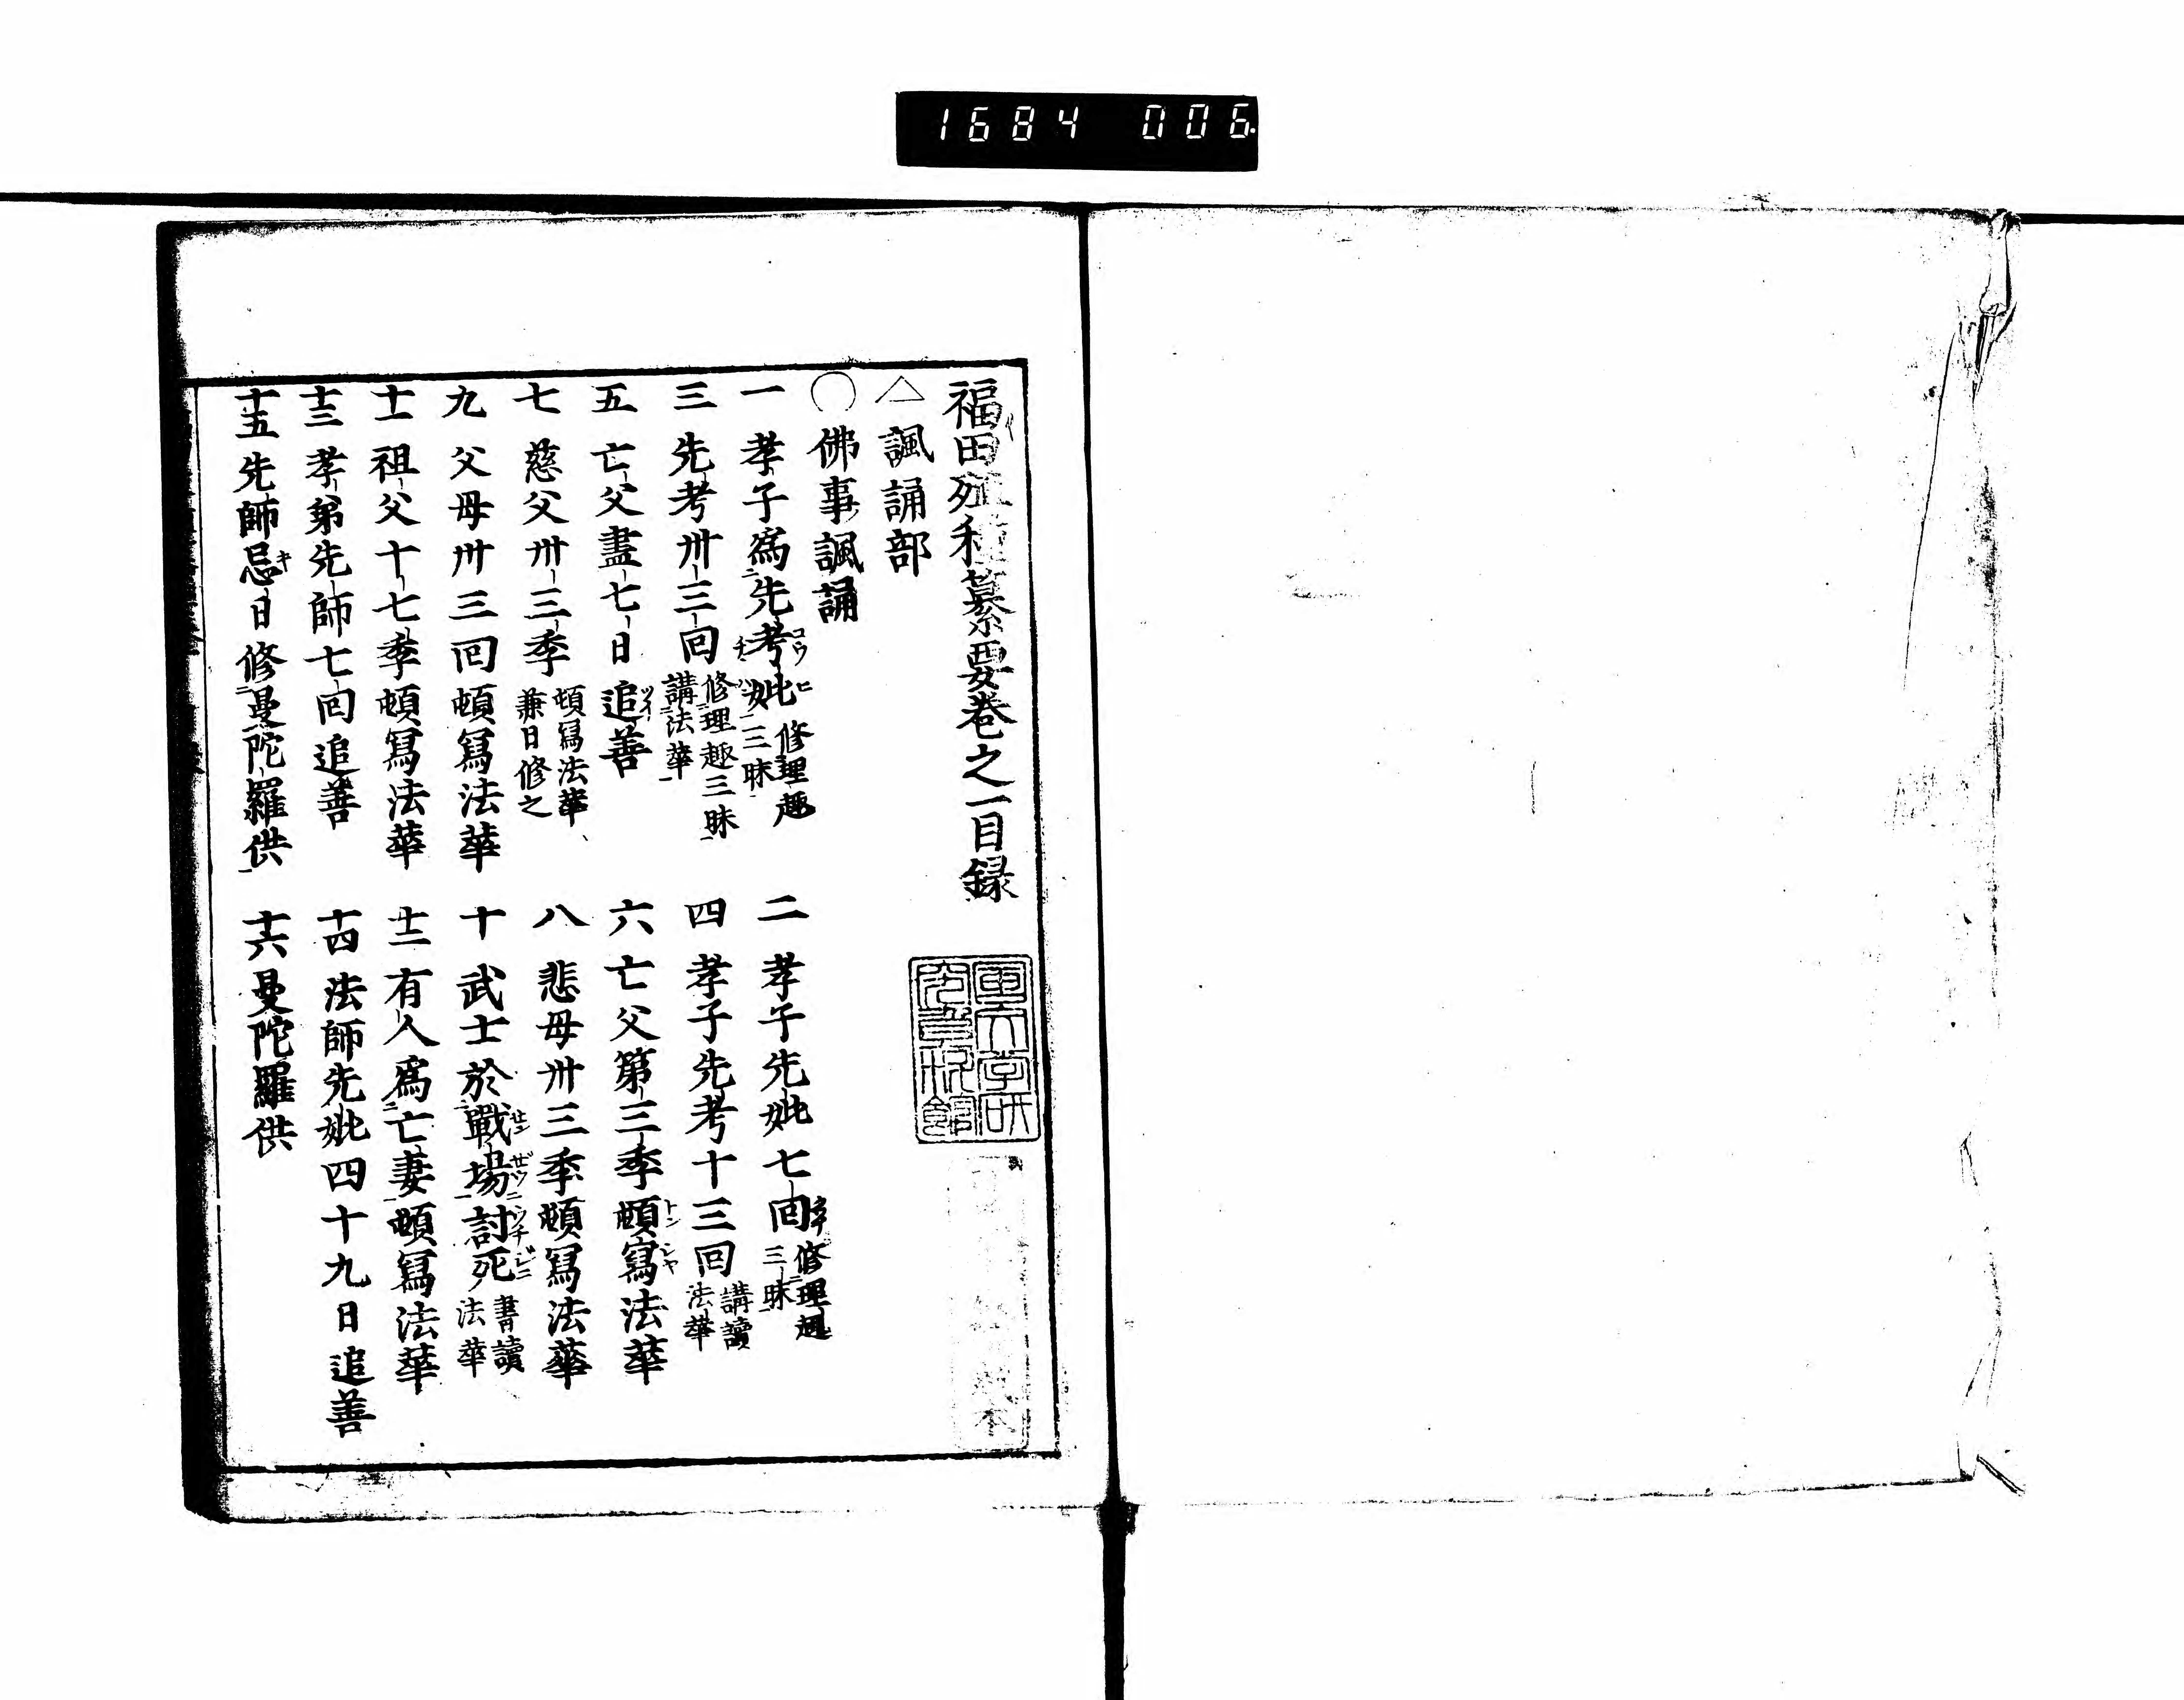 1684 006
福田殖種纂要卷之一目録
△諷誦部
○佛事諷誦
一 孝子爲先考妣 修理趣三昧
二 孝子先妣七回 修理趣三昧
三 先考卅三回 修理趣三昧講法華
四 孝子先考十三回 講讀法華
五 亡父盡七日追善
六 亡父第三季頓寫法華
七 慈父卅三季 頓寫法華兼日修之
八 悲母卅三季頓寫法華
九 父母卅三回頓寫法華
十 武士於戰場討死 書讀法華
十一 祖父十七季頓寫法華
十二 有人爲亡妻頓寫法華
十三 孝弟先師七回追善
十四 法師先妣四十九日追善
十五 先師忌日修曼陀羅供
十六 曼陀羅供